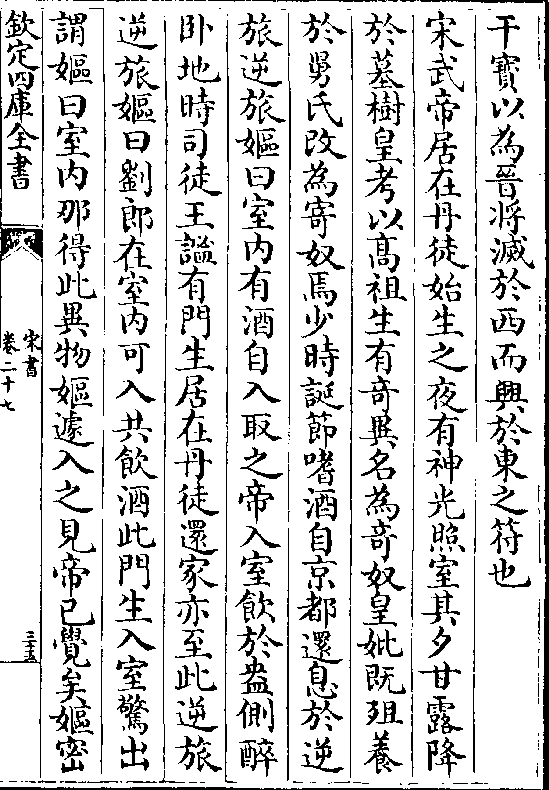 干寶以為晉将滅於西而興於東之符也
宋武帝居在丹徒始生之夜有神光照室其夕甘露降
於墓樹皇考以髙祖生有奇異名為奇奴皇妣既殂養
於舅氏改為寄奴焉少時誕節嗜酒自京都還息於逆
旅逆旅嫗曰室内有酒自入取之帝入室飲於盎側醉
卧地時司徒王謐有門生居在丹徒還家亦至此逆旅
逆旅嫗曰劉郎在室内可入共飲酒此門生入室驚出
謂嫗曰室内那得此異物嫗遽入之見帝已覺矣嫗密
欽定四庫全書
宋書
卷二十七
三五